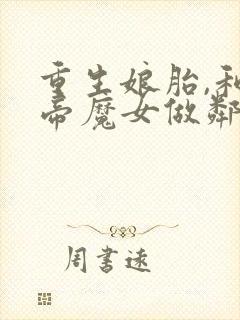 重生娘胎,和
帝魔女做鄰
周書遠